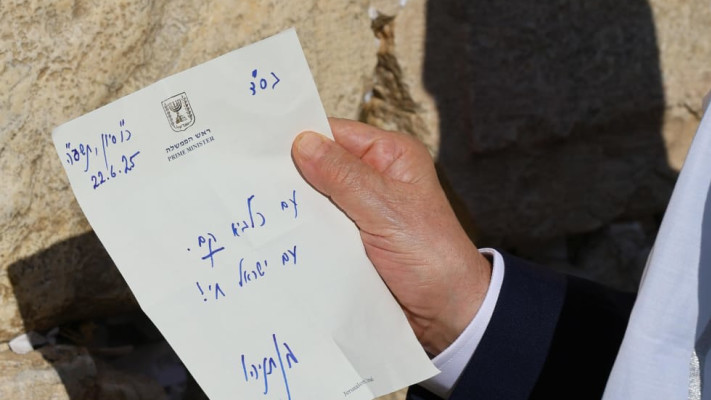 בס"ד
כ"ו סיון, תשפ"ה
22.6.25
ראש הממשלה
PRIME MINISTER
עם כלביא קם.
עם ישראל חי!